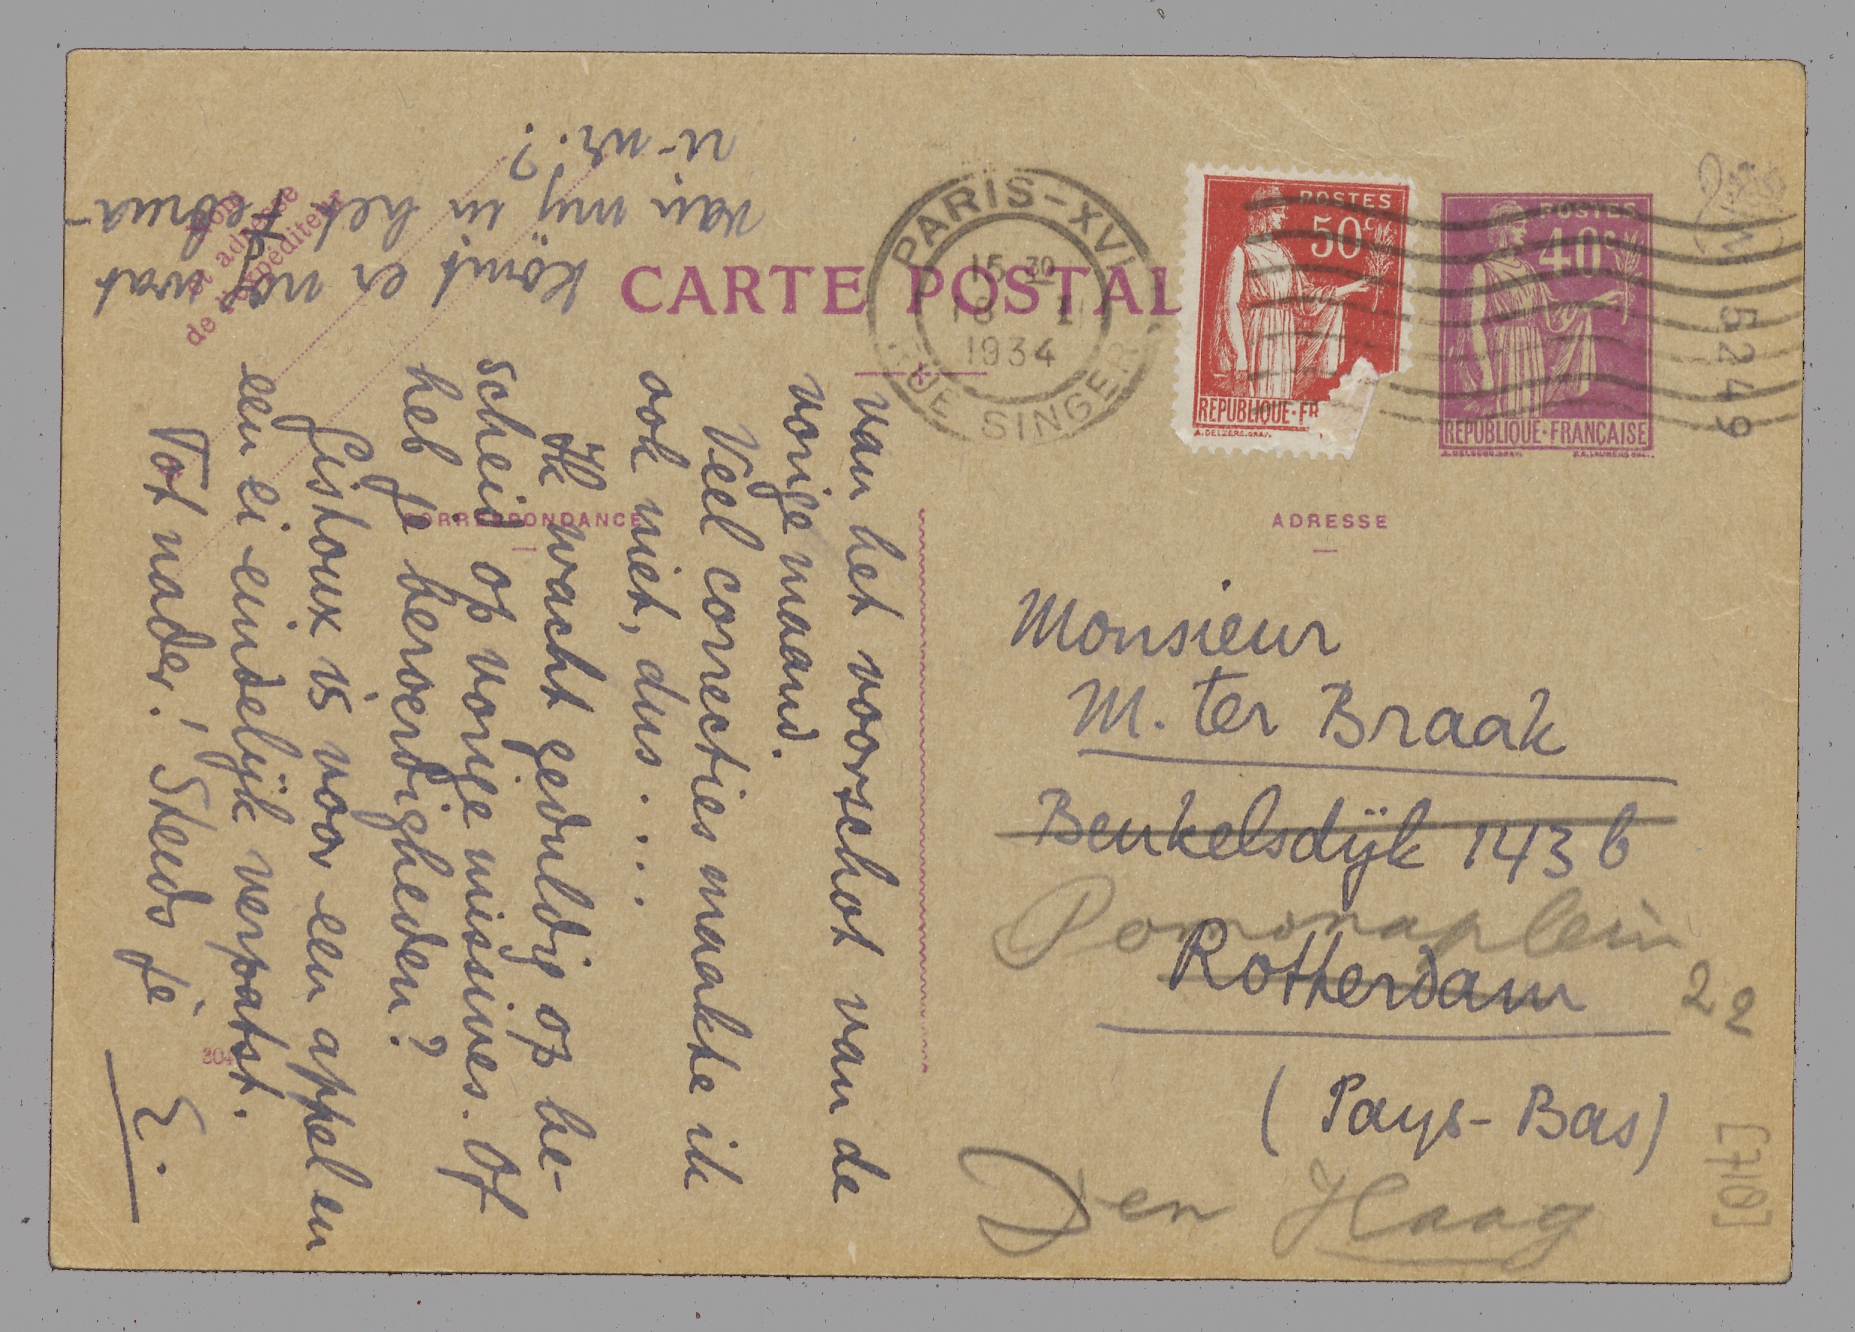 CARTE POSTALE
Nom
et adresse
de l'expéditeur
PARIS-XVI
15 30
18 II
1934
RUE SINGER
POSTES
50c
REPUBLIQUE·FR
POSTES
40c
REPUBLIQUE·FRANÇAISE
5249
CORRESPONDANCE
ADRESSE
Monsieur
M. ter Braak
Beukelsdijk 143 b
Pomonaplein
22
Rotterdam
(Pays-Bas)
Den Haag
[017]
van het voorschot van de
vorige maand.
Veel correcties maakte ik
ook niet, dus....
Ik wacht geduldig op be-
scheid op vorige missives. Of
heb je beroerdigheden?
Gistoux is voor een appel en
een ei eindelijk verpatst.
Tot nader! Steeds je
E.
Komt er nog wat
van mij in het februa-
ri-nr.?
304